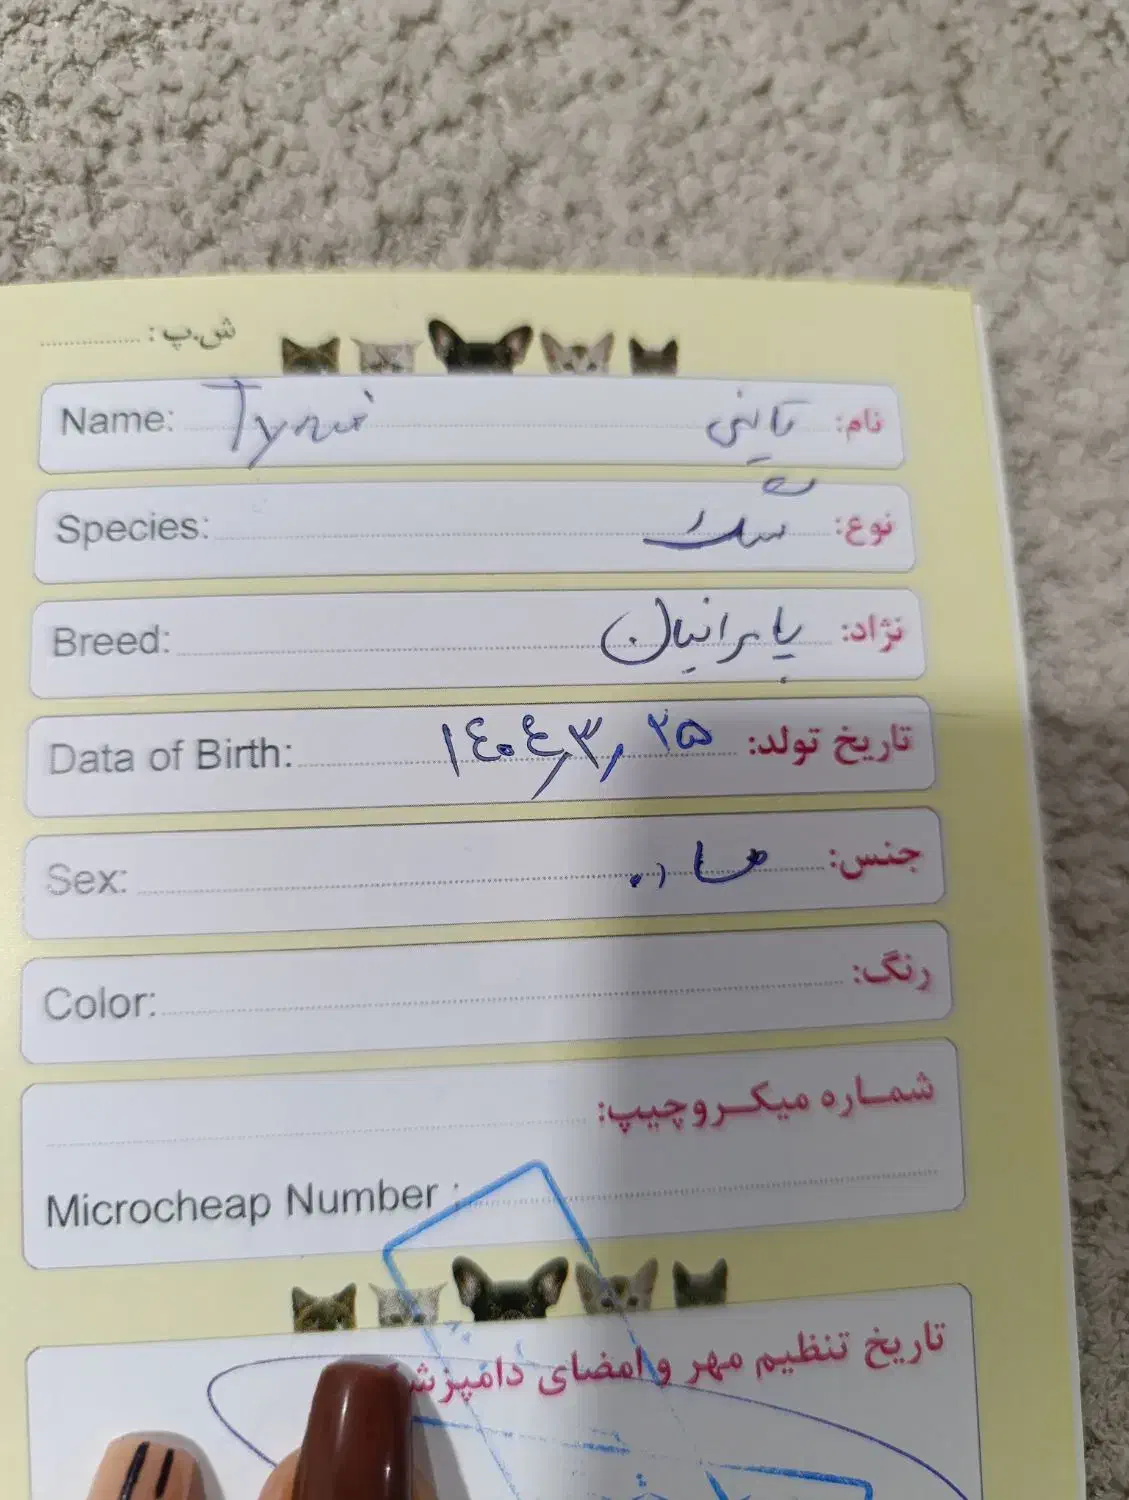 ش.پ :
Name: Tyni نام: تاینی
Species: نوع: سگ
Breed: نژاد: پامرانیان
Data of Birth: تاریخ تولد: ۱۴۰۴٫۳٫۲۵
Sex: جنس: ماده
Color: رنگ:
شماره میکروچیپ:
Microcheap Number :
تاریخ تنظیم مهر و امضای دامپزشک